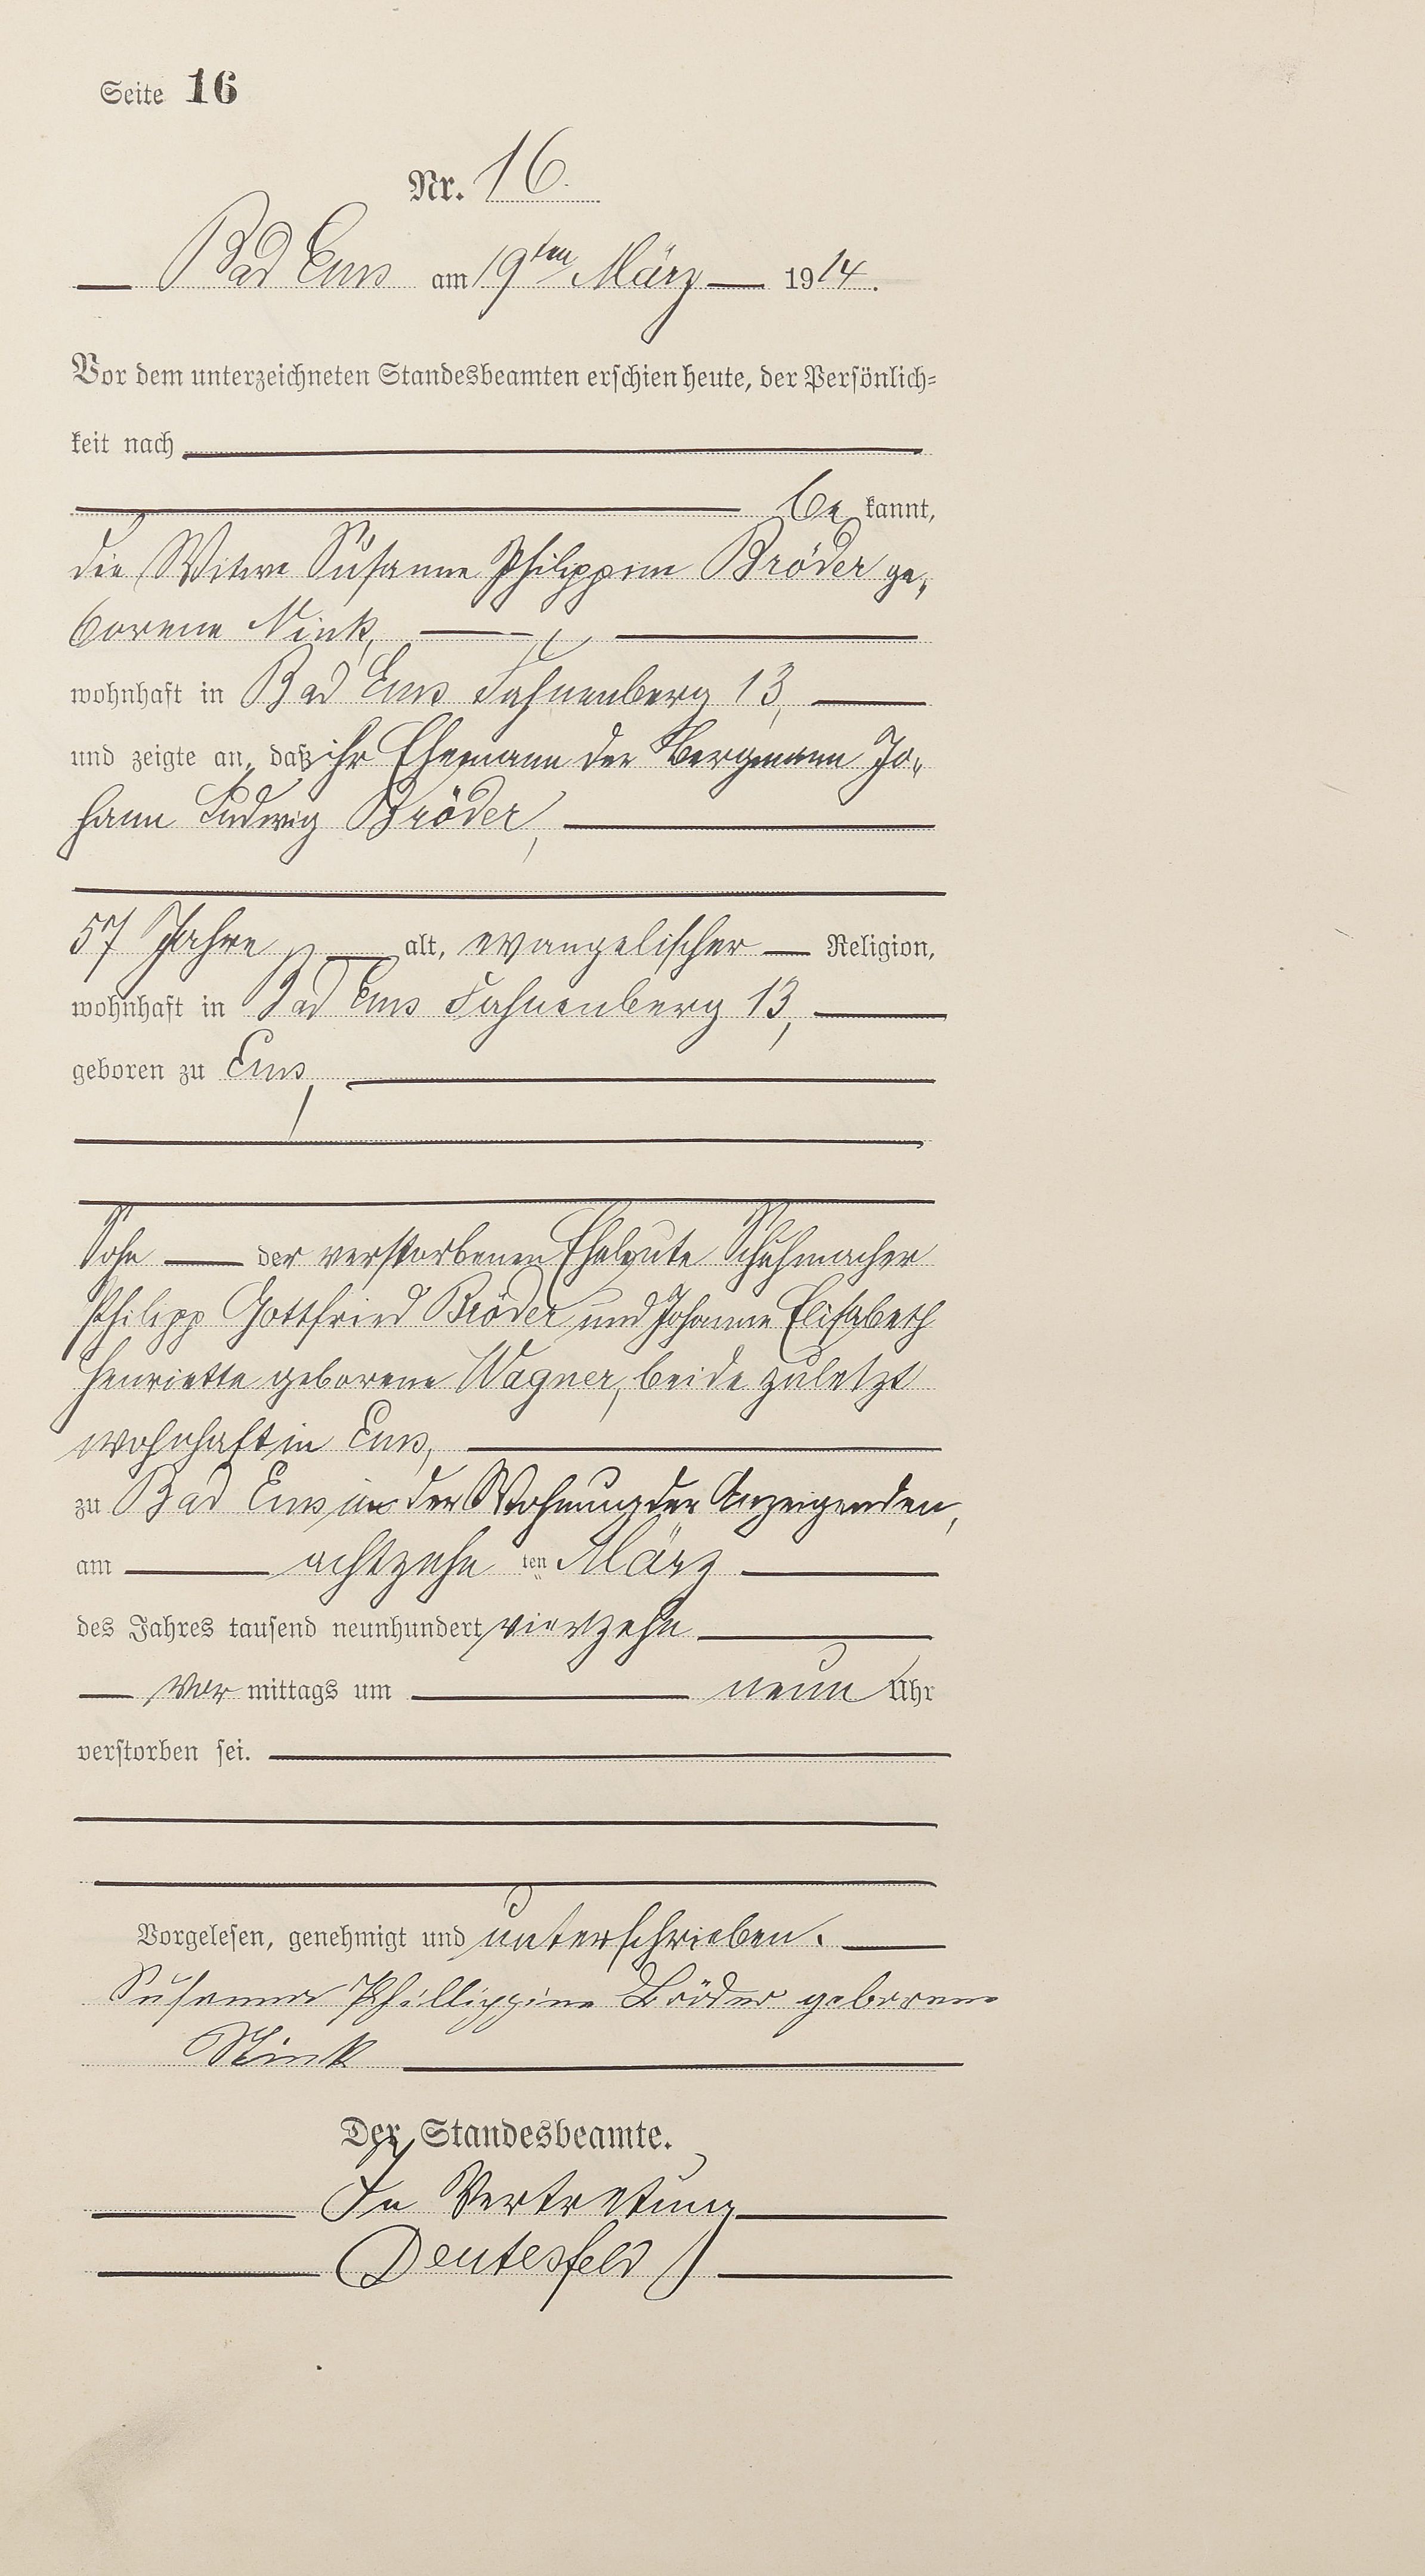 Seite 16
Nr. 16.
Bad Ems am 19ten März 1914.
Vor dem unterzeichneten Standesbeamten erschien heute, der Persönlich-
keit nach
be kannt,
die Witwe Susanne Philippine Bröder ge-
borene Nink,
wohnhaft in Bad Ems Fahnenberg 13,
und zeigte an, daß ihr Ehemann der Bergmann Jo-
hann Ludwig Bröder,
57 Jahre alt, evangelischer Religion,
wohnhaft in Bad Ems Fahnenberg 13,
geboren zu Ems,
Sohn der verstorbenen Eheleute Schuhmacher
Philipp Gottfried Bröder und Johanne Elisabeth
Henriette geborene Wagner, beide zuletzt
wohnhaft in Ems,
zu Bad Ems in der Wohnung der Anzeigenden,
am achtzehn ten März
des Jahres tausend neunhundert vierzehn
Vor mittags um neun Uhr
verstorben sei.
Vorgelesen, genehmigt und unterschrieben.
Susanna Phillippine Bröder geborene
Nink
Der Standesbeamte.
In Vertretung
Deutesfeld